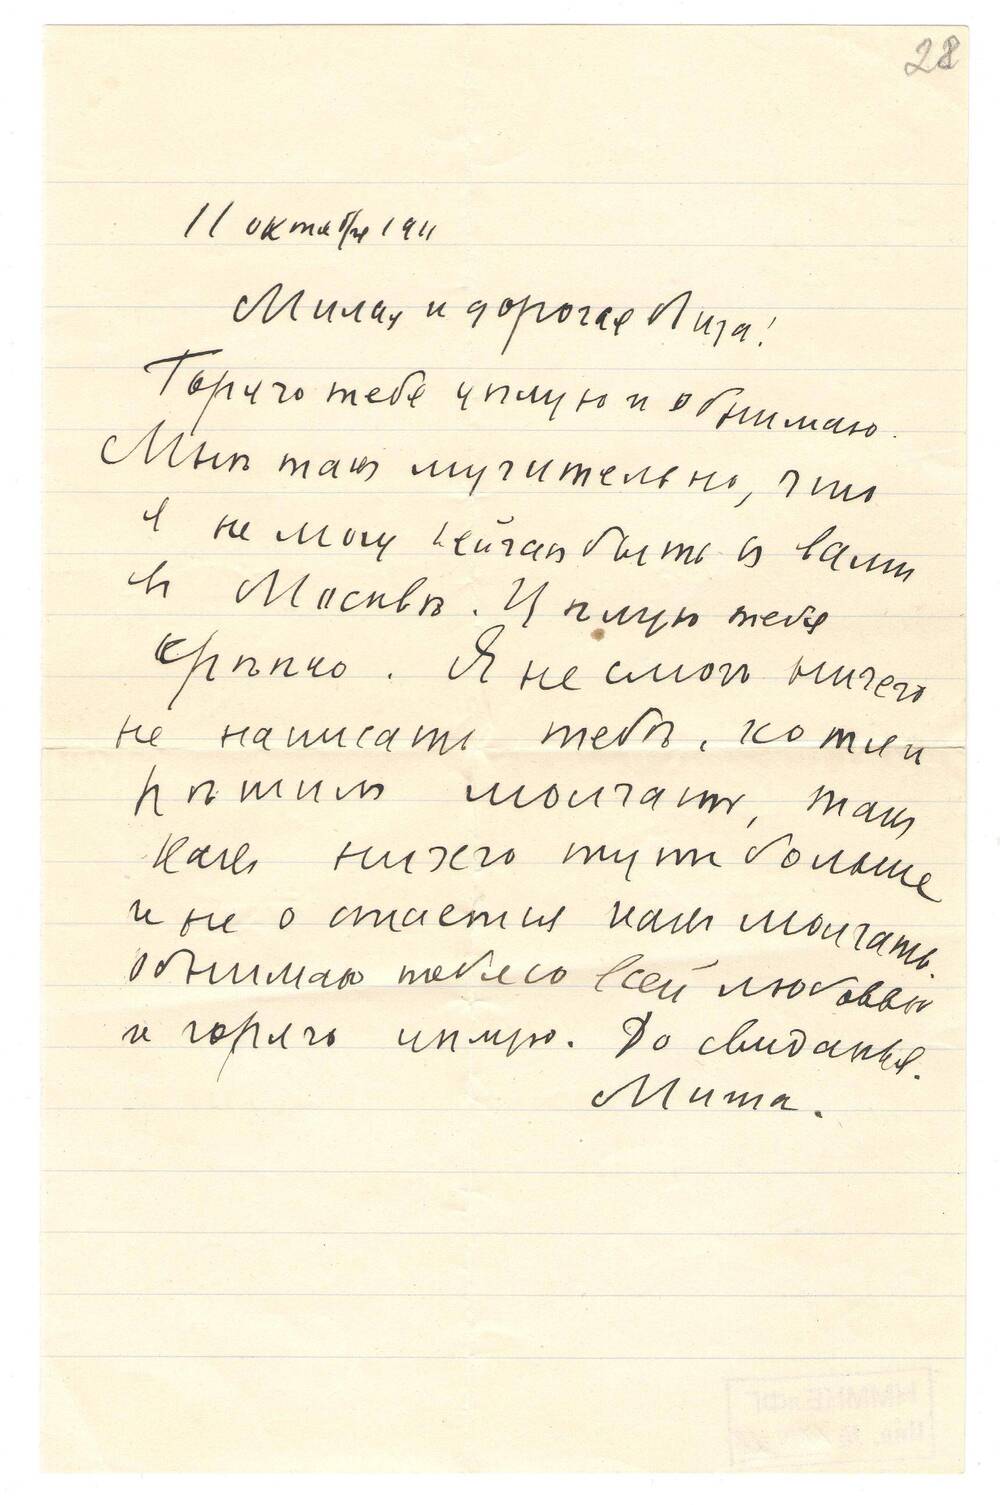 28
11 октября 1911
Милая и дорогая Лиза!
Горячо тебя цѣлую и обнимаю.
Мнѣ такъ мучительно, что
я не могу сейчас быть с вами
въ Москвѣ. Цѣлую тебя
крѣпко. Я не смогъ ничего
не написать тебѣ, хотя и
рѣшилъ молчать, такъ
какъ ничего тутъ больше
и не остается какъ молчать.
Обнимаю тебя со всей любовью
и горячо цѣлую. До свиданья.
Митя.